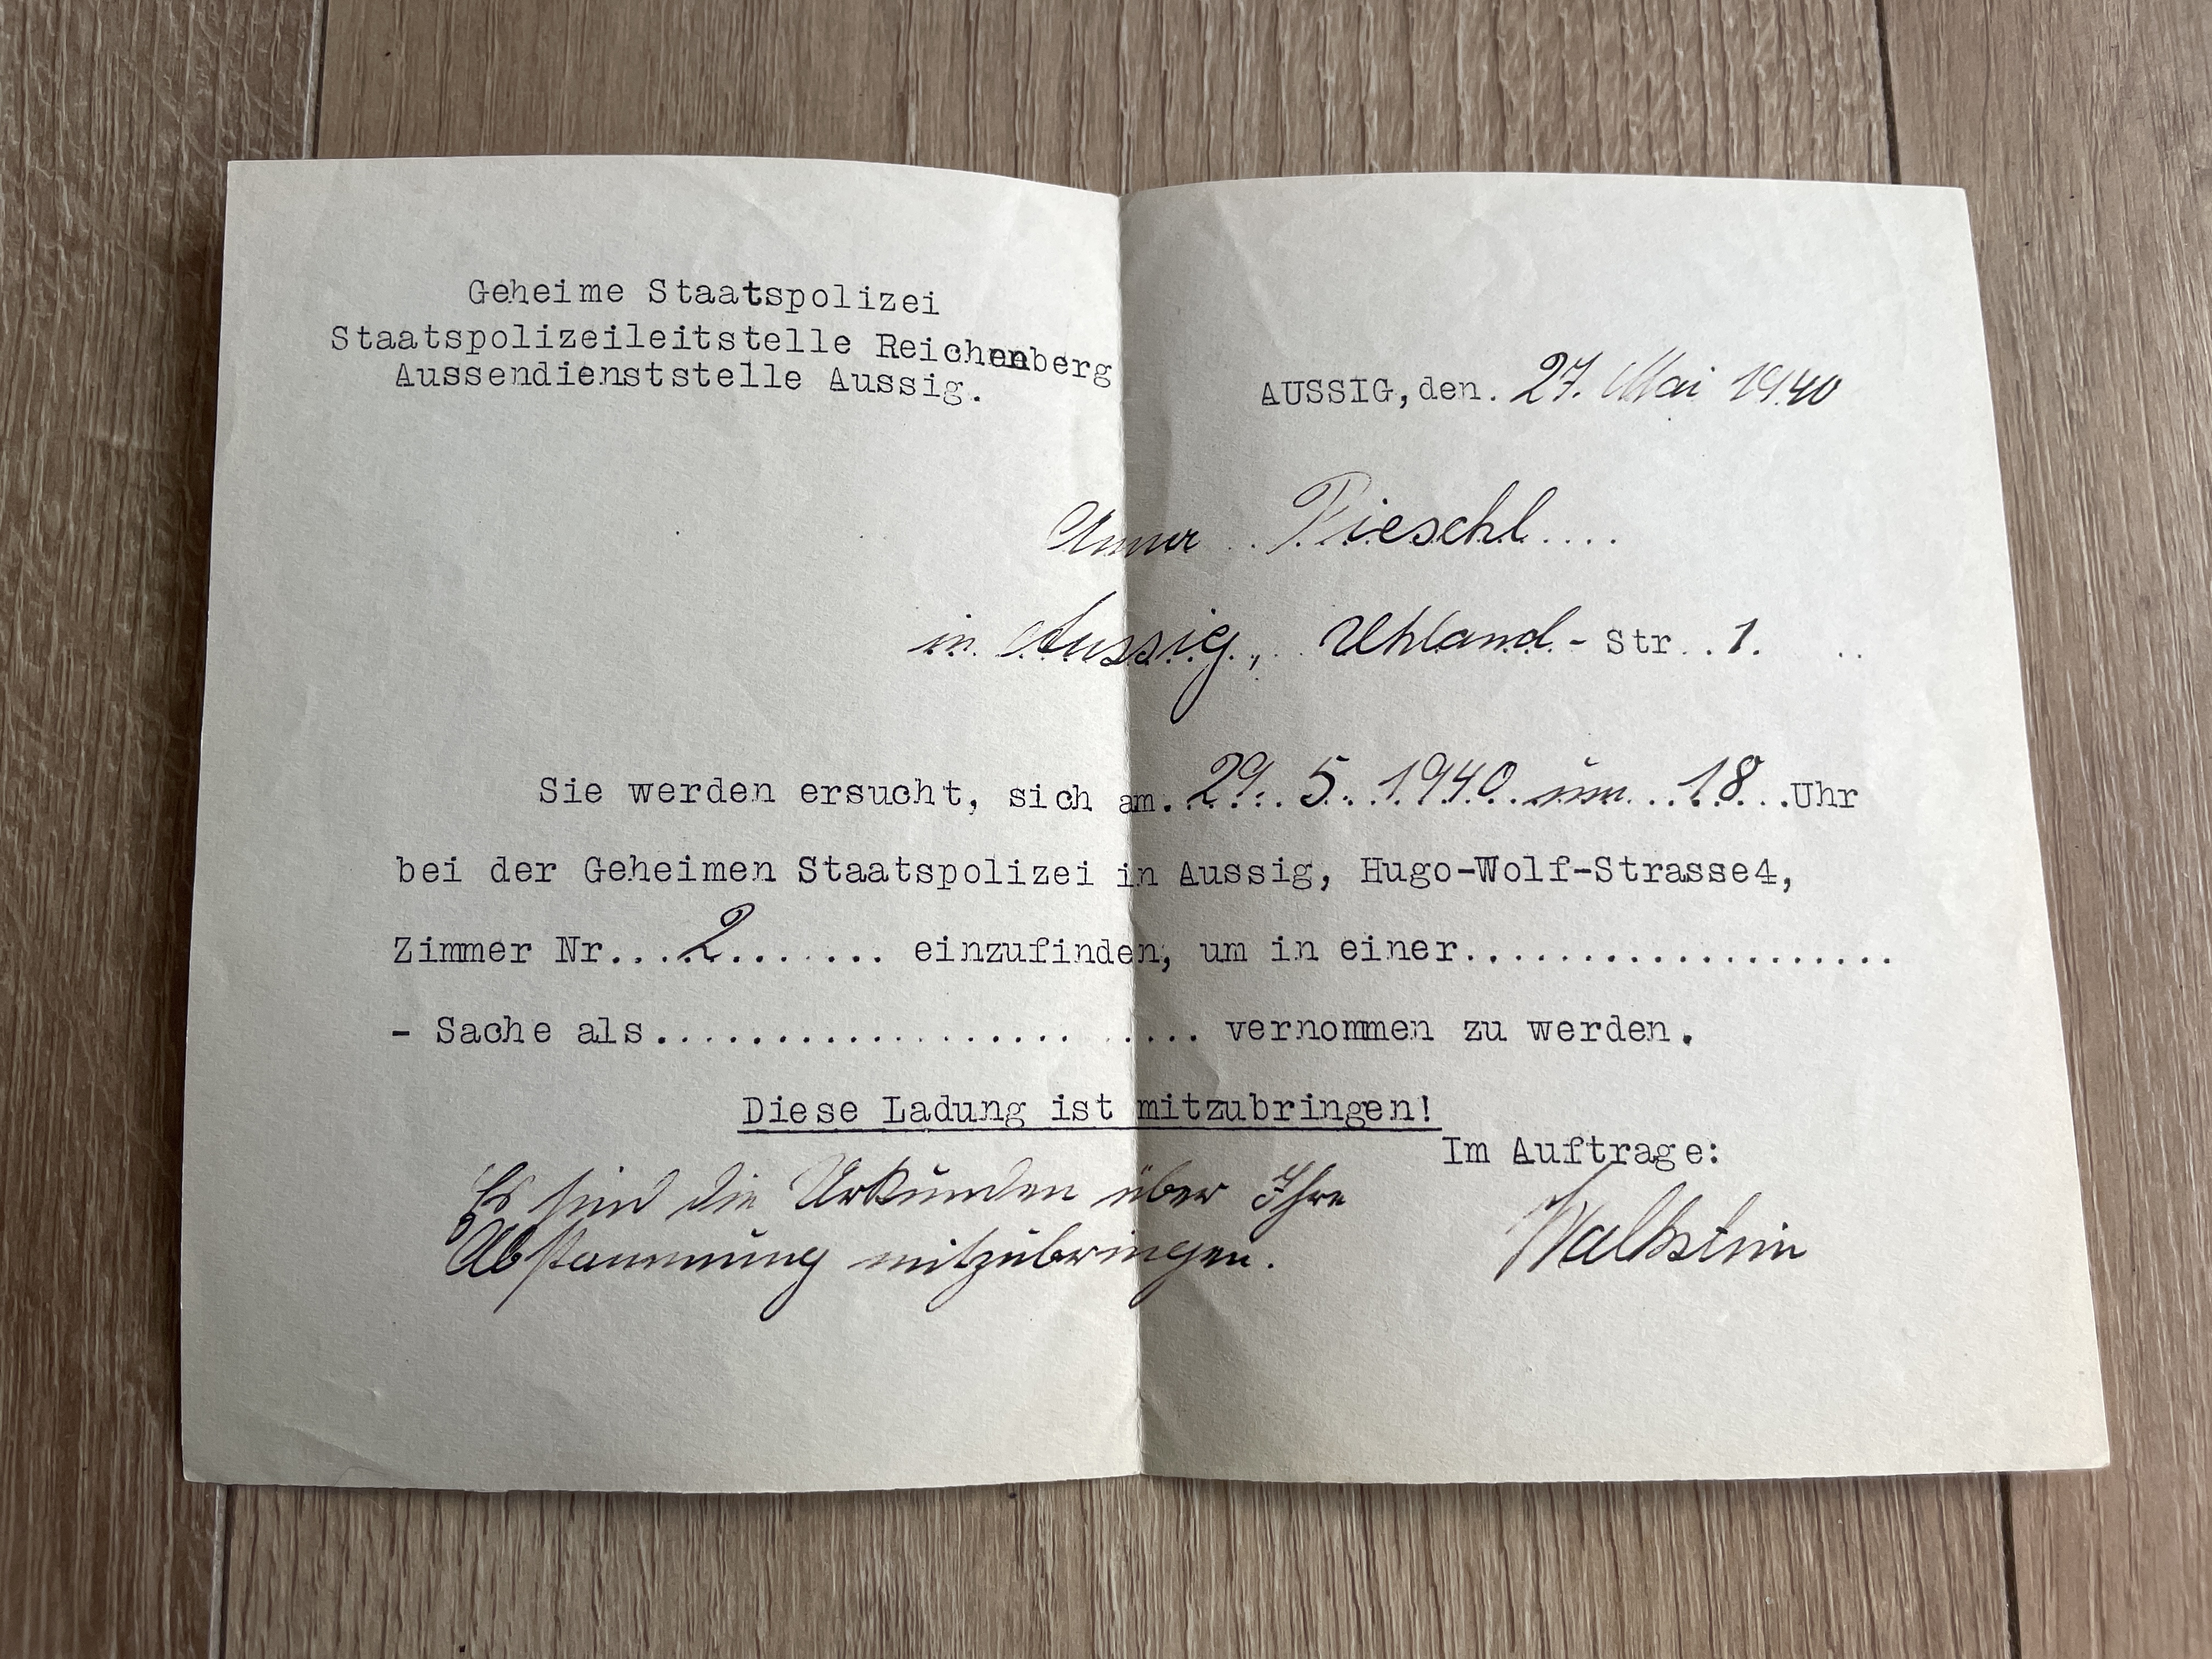 Geheime Staatspolizei
Staatspolizeileitstelle Reichenberg
Aussendienststelle Aussig.
AUSSIG, den. 27. Mai 1940
Anna . Pieschl....
in Aussig, Uhland - Str..1. ..
Sie werden ersucht, sich am. 29. 5. 1940 um 18...Uhr
bei der Geheimen Staatspolizei in Aussig, Hugo-Wolf-Strasse4,
Zimmer Nr....2....... einzufinden, um in einer...................
- Sache als................... .... vernommen zu werden.
Diese Ladung ist mitzubringen!
Im Auftrage:
Es sind die Urkunden über Ihre
Abstammung mitzubringen.